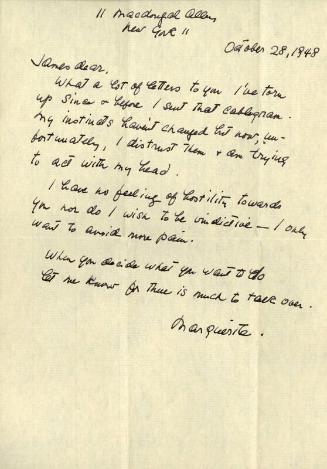 11 Macdougal Alley
New York 11
October 28, 1948
James dear,
What a lot of letters to you I've torn
up since & before I sent that cablegram.
My instincts haven't changed but now, un-
fortunately, I distrust them & am trying
to act with my head.
I have no feeling of hostility towards
you nor do I wish to be vindictive — I only
want to avoid more pain.
When you decide what you want to do
let me know for there is much to talk over.
Marguerite.